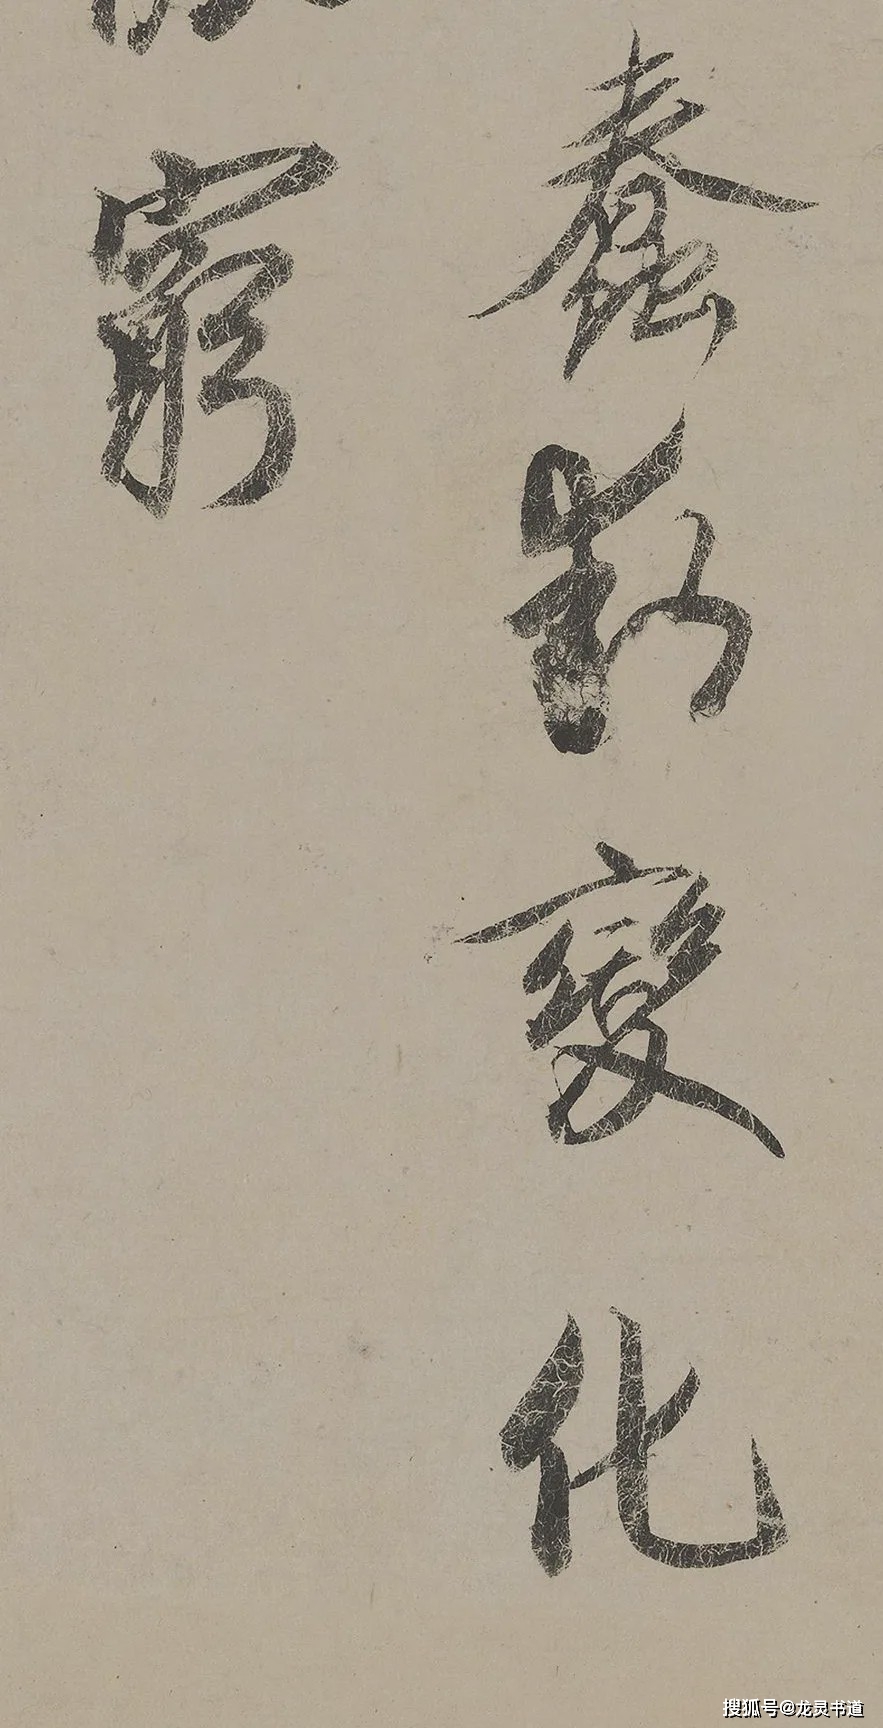 蠢動變化
窮
搜狐号@龙灵书道